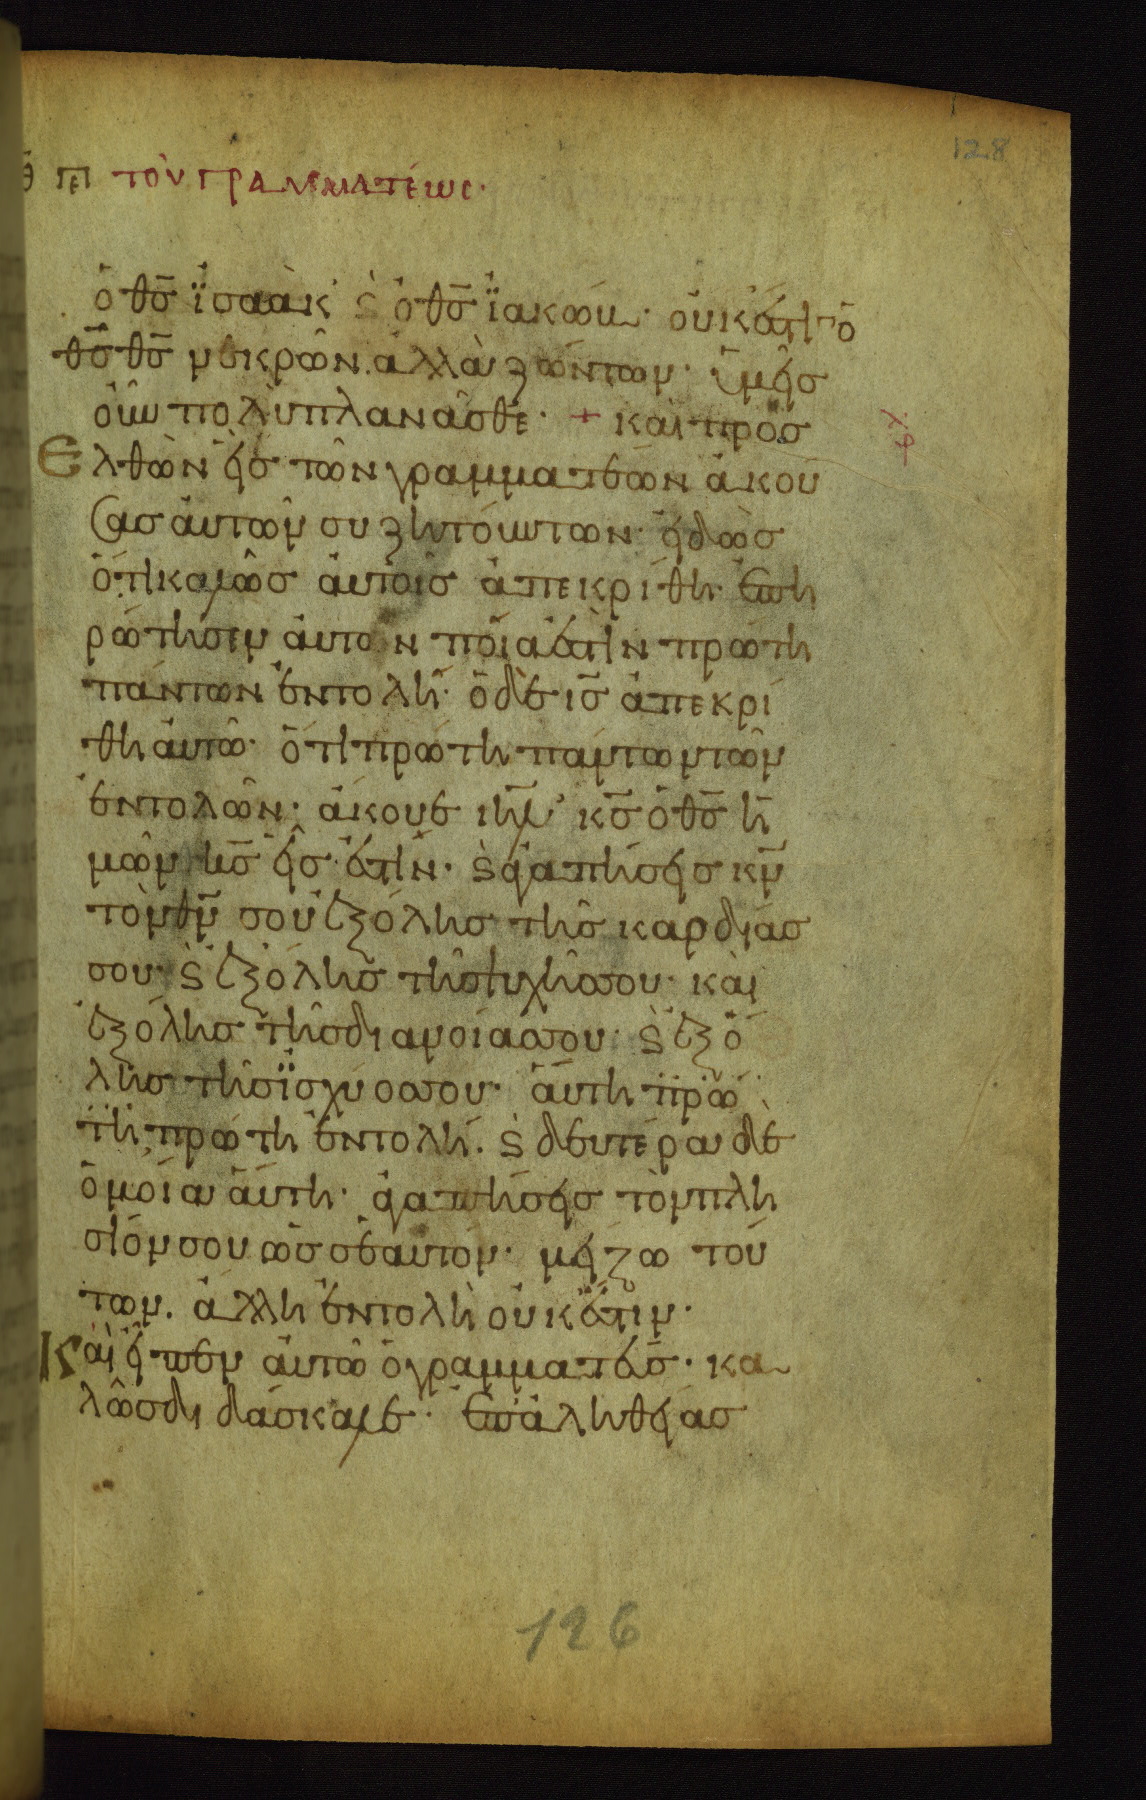 128
πε τοῦ γραμματέως·
ὁ θς̅ ϊσαὰκ ϗ ὁ θς̅ ϊακώβ· οὐκ ἔστιν ὁ
θς̅ θς̅ νεκρῶν. ἀλλὰ ζώντων· ὑμεῖς
οὖν πολὺ πλανᾶσθε· + καὶ προσ
ελθὼν εἷς τῶν γραμματέων ἀκού
σας αὐτῶν συζητούντων· εἰδὼς
ὅτι καλῶς αὐτοῖς ἀπεκρίθη· ἐπη
ρώτησεν αὐτὸν ποία ἐστὶν πρώτη
πάντων ἐντολή· ὁ δὲ ις̅ ἀπεκρί
θη αὐτῶ· ὅτι πρώτη πάντων τῶν
ἐντολῶν· ἄκουε ιηλ̅ κς̅ ὁ θς̅ ἡ
μῶν κς̅ εἷς ἐστίν· ϗ ἀγαπήσεις κν̅
τὸν θν̅ σου ἐξ ὅλης τῆς καρδίας
σου· ϗ ἐξ ὅλης τῆς ψυχῆς σου· καὶ
ἐξ ὅλης τῆς διανοίας σου· ϗ ἐξ ὅ
λης τῆς ϊσχύος σου· αὕτη πρώ
τη πρώτη ἐντολή. ϗ δευτέρα δὲ
ὁμοία αὕτη· ἀγαπήσεις τὸν πλη
σίον σου ὡς σεαυτόν· μείζω τού
των. ἄλλη ἐντολὴ οὐκ ἔστιν·
Καὶ εἶπεν αὐτῶ ὁ γραμματεύς· κα
λῶς διδάσκαλε· ἐπ' ἀληθείας
126